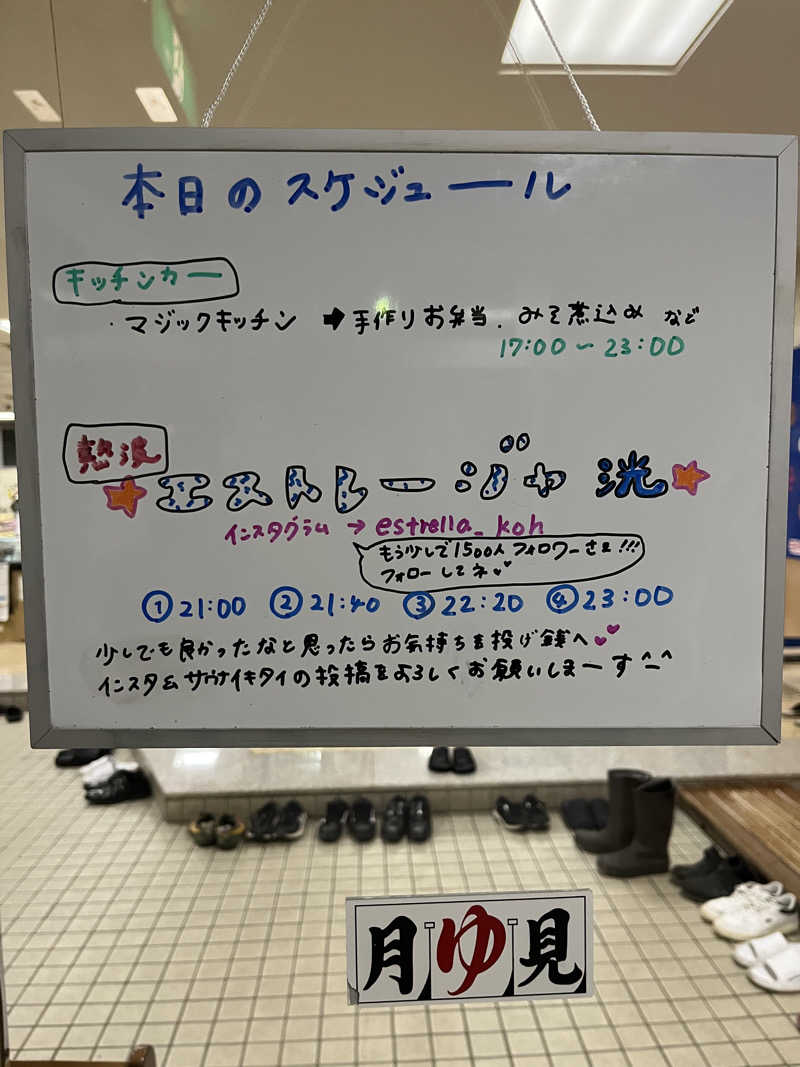 本日のスケジュール
キッチンカー
・マジックキッチン ➡ 手作りお弁当、みそ煮込み など
17:00〜23:00
熱波
★エストレージャ 洸★
インスタグラム → estrella_koh
もう少しで1500人フォロワーさま!!!
フォローしてネ♥♥
①21:00 ②21:40 ③22:20 ④23:00
少しでも良かったなと思ったらお気持ちを投げ銭へ♥♥
インスタ&サウナイキタイの投稿をよろしくお願いしまーす^_^
月ゆ見